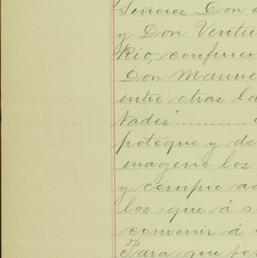 Señores Don
y Don Ventu
Rio, confirie
Don Manue
entre otras la
tades"..........
poteque y de
enagene los
y compre a
los que á s
convenir á
Para que for